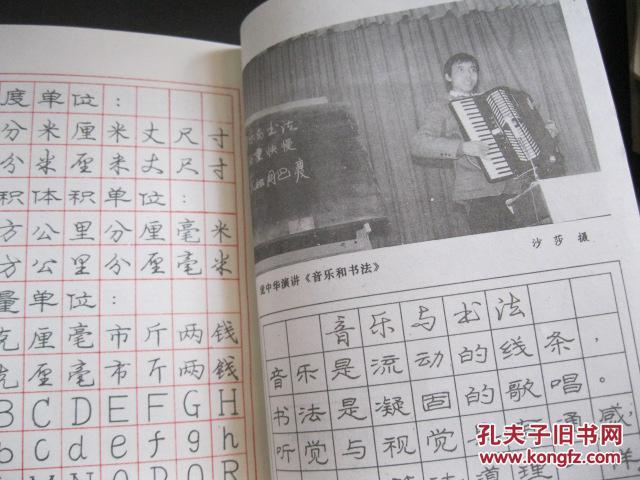 度单位：
分米厘米丈尺寸
分米厘米丈尺寸
积体积单位：
方公里分厘毫米
方公里分厘毫米
量单位：
克厘毫市斤两钱
克厘毫市斤两钱
B C D E F G H
b c d e f g h
书法
快慢
沙莎 摄
中华演讲《音乐和书法》
音乐与书法
音乐是流动的线条，
书法是凝固的歌唱。
听觉与视觉 通感
道理 样
孔夫子旧书网
www.kongfz.com